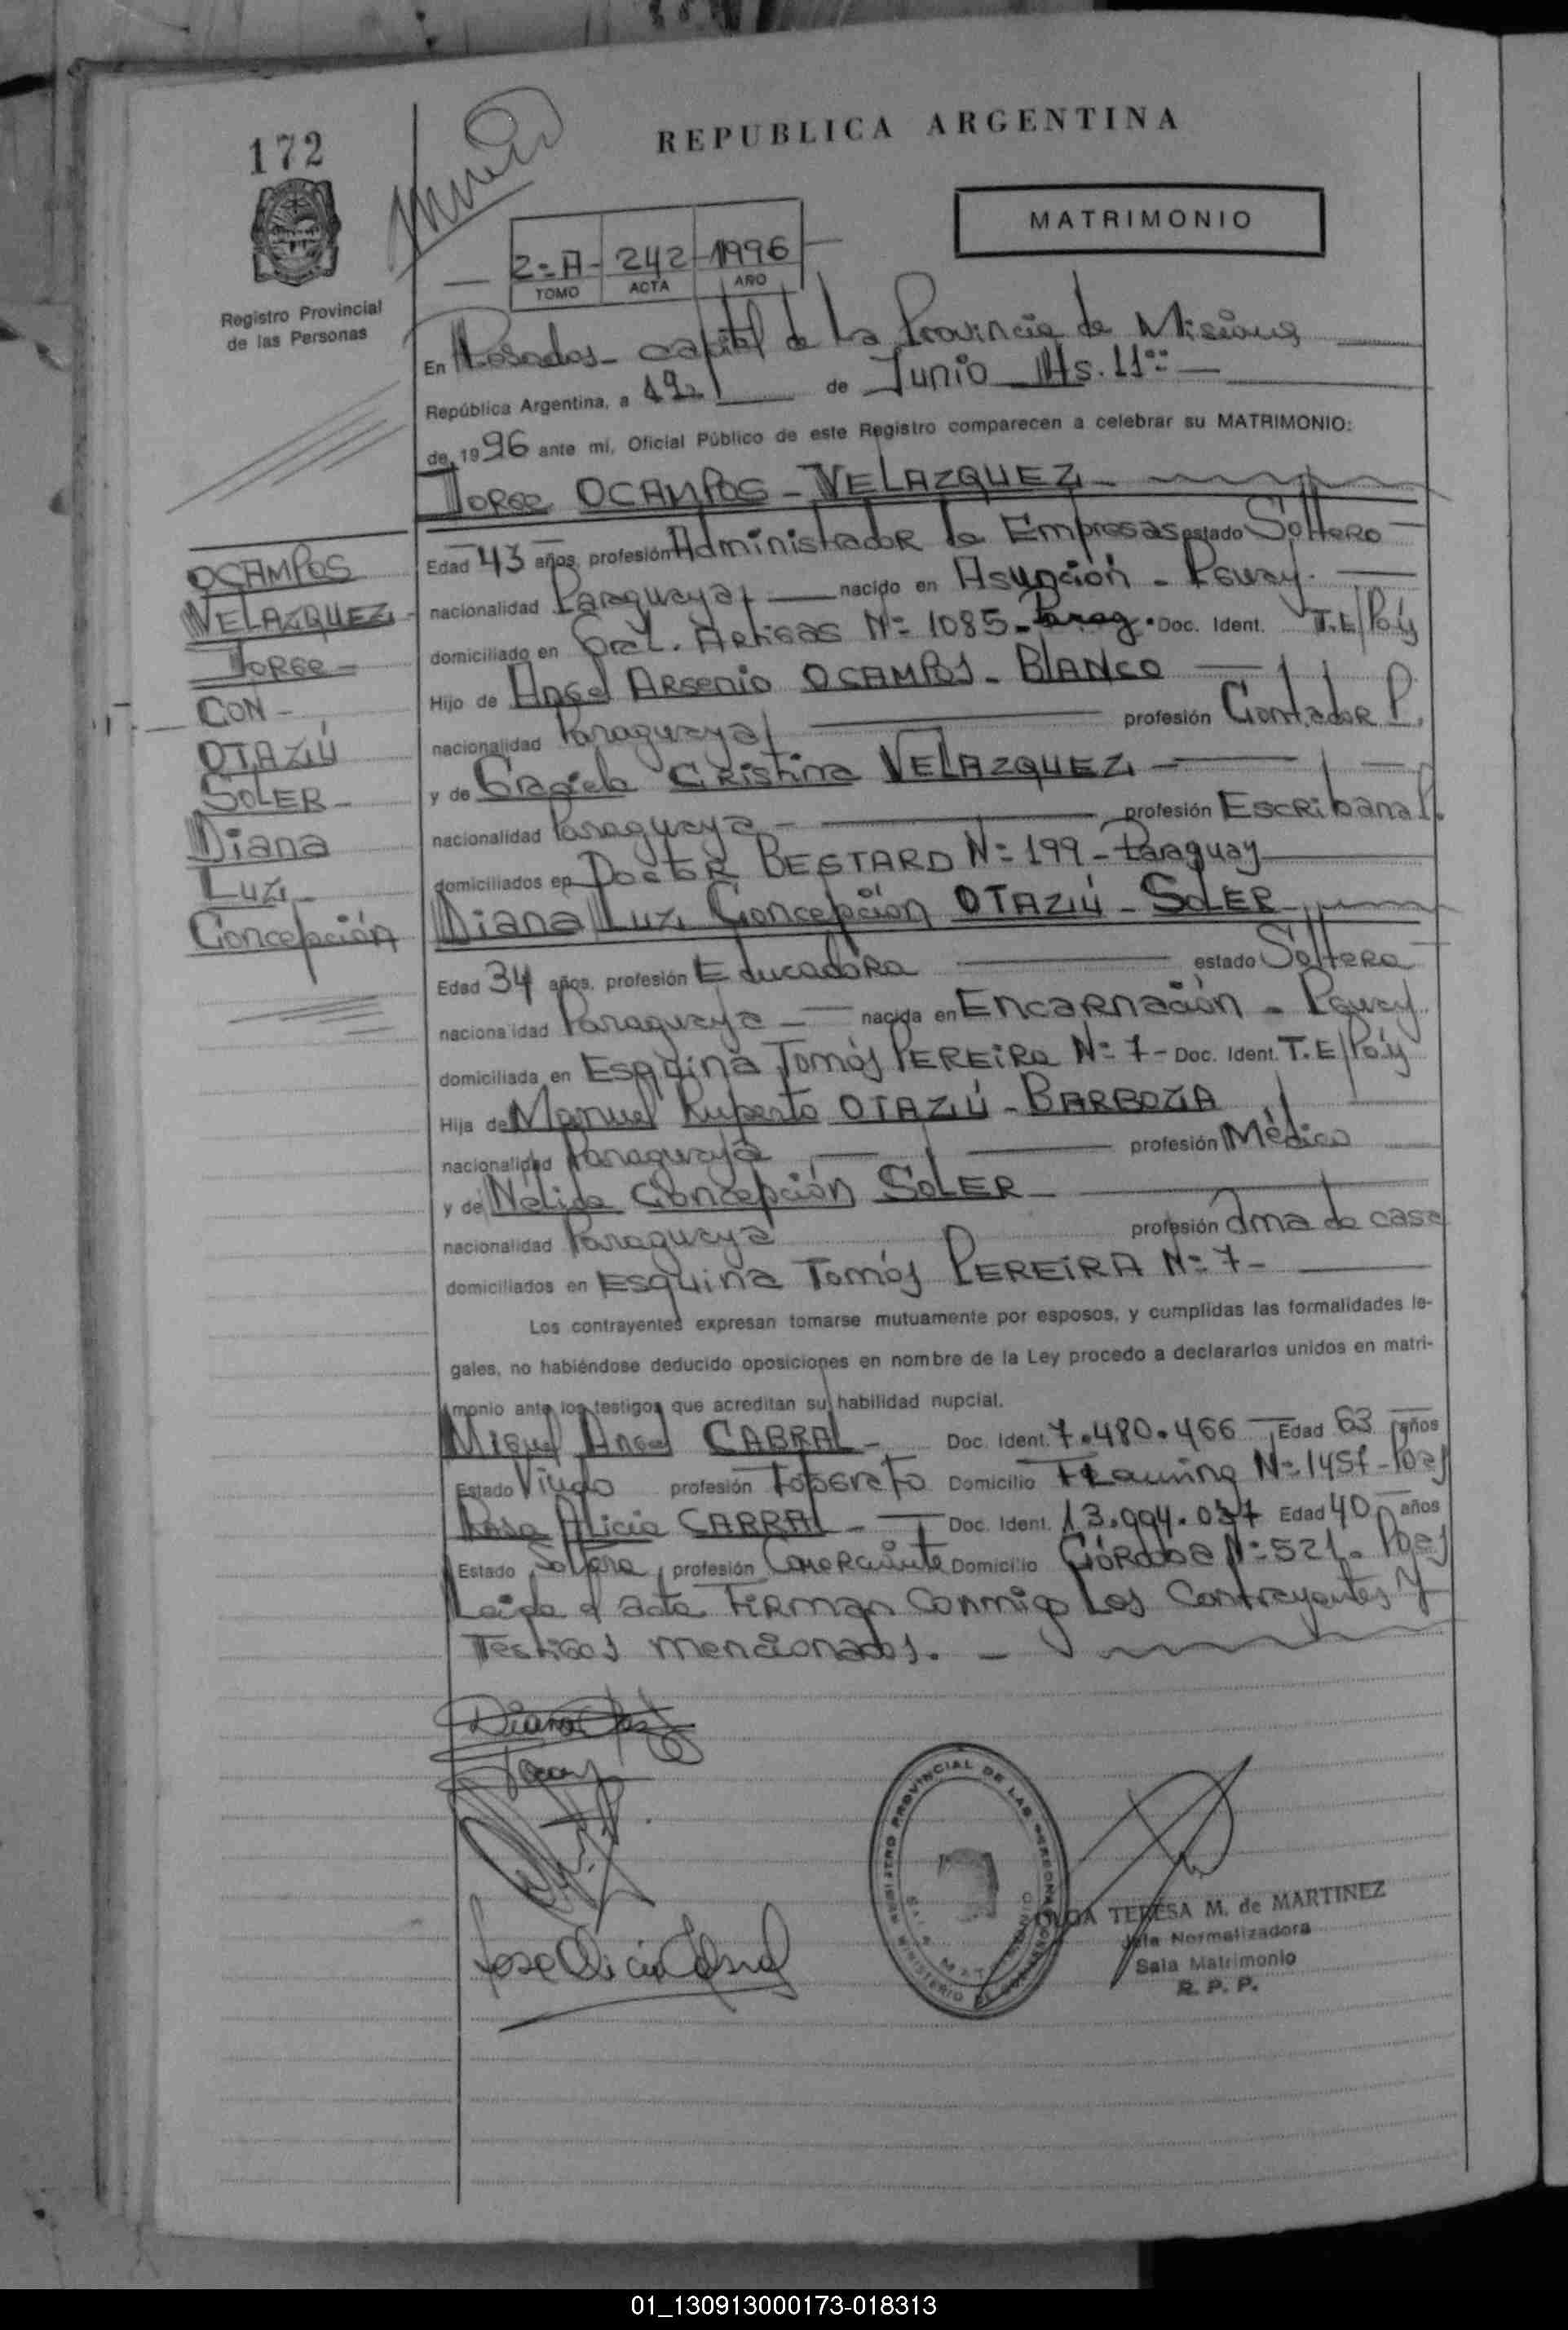 172
REPUBLICA ARGENTINA
MATRIMONIO
Registro Provincial
de las Personas
2-A- 242 1996
TOMO ACTA AÑO
En Posadas - capital de la Provincia de Misiones
República Argentina, a 19 de Junio Hs. 11
de 1996 ante mi, Oficial Público de este Registro comparecen a celebrar su MATRIMONIO:
JORGE OCAMPOS - VELAZQUEZ -
Edad 43 años, profesión Administrador de Empresas estado Soltero
nacionalidad Paraguaya nacido en Asunción - Pguay.
domiciliado en Gral. Artigas Nº 1085 - Parag. Doc. Ident. T.E/Pöy
Hijo de Angel Arsenio OCAMPOS - BLANCO
nacionalidad Paraguaya profesión Contador P.
y de Graciela Cristina VELAZQUEZ -
nacionalidad Paraguaya - profesión Escribana P.
domiciliados en Doctor BESTARD Nº 199 - Paraguay
Diana Luz Concepción OTAZÚ - SOLER
Edad 34 años, profesión Educadora estado Soltera
nacionalidad Paraguaya - nacida en Encarnación - Pguay.
domiciliada en Esquina Tomás PEREIRA Nº 7 - Doc. Ident. T.E/Pöy
Hija de Manuel Ruperto OTAZÚ - BARBOZA
nacionalidad Paraguaya profesión Médico
y de Nélida Concepción SOLER -
nacionalidad Paraguaya profesión ama de casa
domiciliados en Esquina Tomás PEREIRA Nº 7 -
Los contrayentes expresan tomarse mutuamente por esposos, y cumplidas las formalidades le-
gales, no habiéndose deducido oposiciones en nombre de la Ley procedo a declararlos unidos en matri-
monio ante los testigos que acreditan su habilidad nupcial.
Miguel Angel CABRAL - Doc. Ident. 7.480.466 Edad 63 años
Estado Viudo profesión Topógrafo Domicilio Nº Pdas
Rosa Alicia CABRAL - Doc. Ident. 13.994.037 Edad 40 años
Estado Soltera, profesión Comerciante Domicilio Córdoba Nº 521 - Pdas
Leida el acta Firman Conmigo Los Contrayentes y
Testigos mencionados. -
OCAMPOS
VELAZQUEZ -
JORGE -
CON -
OTAZÚ
SOLER -
Diana
Luz -
Concepción
Rosa Alicia Cabral
REGISTRO PROVINCIAL DE LAS PERSONAS
OLGA TERESA M. de MARTINEZ
Jefa Normalizadora
Sala Matrimonio
R. P. P.
01_130913000173-018313